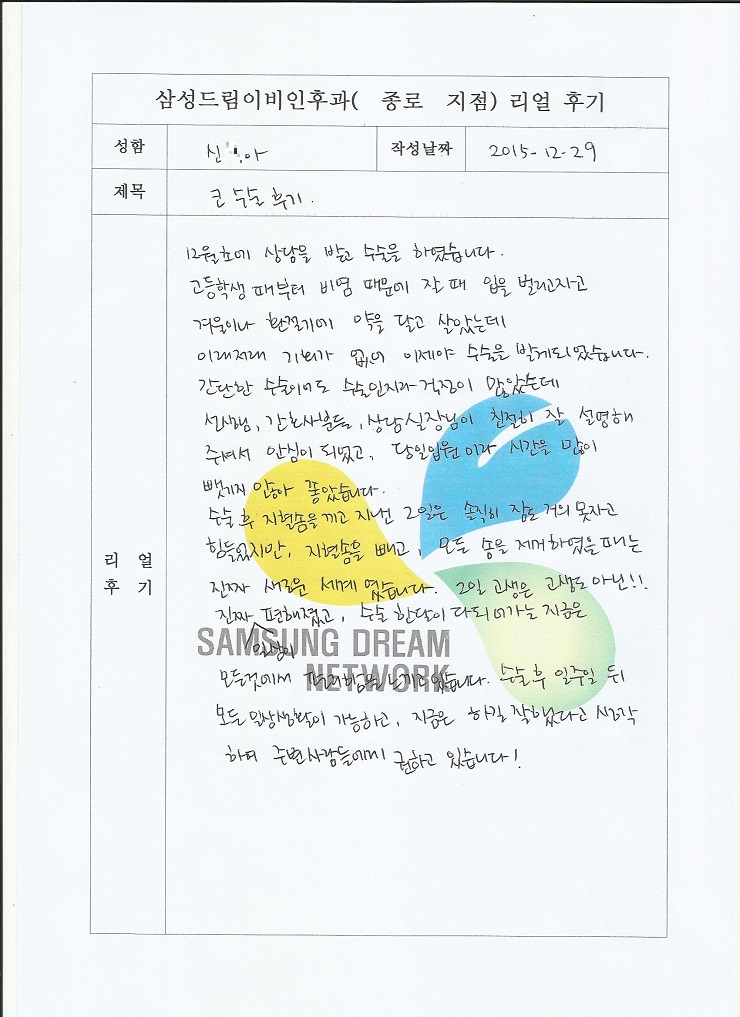 삼성드림이비인후과( 종로 지점) 리얼 후기
성함 신 아 작성날짜 2015-12-29
제목 코 수술 후기.
12월초에 상담을 받고 수술을 하였습니다.
고등학생 때부터 비염 때문에 잘 때 입을 벌리고자고
겨울이나 환절기에 약을 달고 살았는데
이래저래 기회가 없어 이제야 수술을 받게되었습니다.
간단한 수술이어도 수술인지라 걱정이 많았는데
선생님, 간호사분들, 상담실장님이 친절히 잘 설명해
주셔서 안심이 되었고, 당일입원이라 시간을 많이
뺏기지 않아 좋았습니다.
수술 후 지혈솜을 끼고 지낸 2일은 솔직히 잠도 거의 못자고
힘들었지만, 지혈솜을 빼고, 모든 솜을 제거하였을 때는
리 얼
후 기
진짜 새로운 세계였습니다. 2일 고생은 고생도 아닌!!
진짜 편해졌고, 수술 한달이 다되어가는 지금은
일상이
SAMSUNG DREAM
NETWORK
모든것에서 편리함을 느끼고 있습니다. 수술후 일주일 뒤
모든 일상생활이 가능하고, 지금은 하길 잘했다고 생각
하며 주변사람들에게 권하고 있습니다!